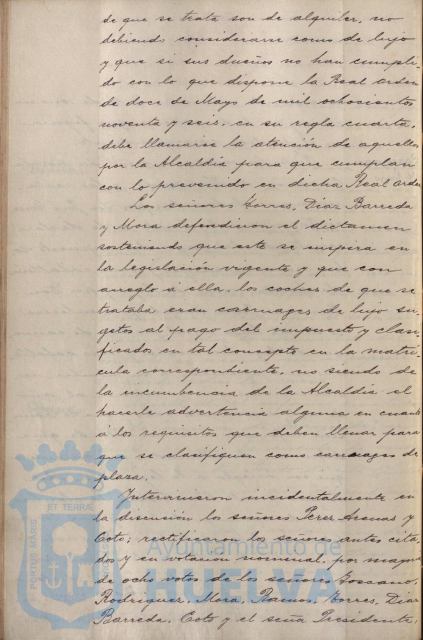 de que se trata son de alquiler, no
debiendo considerarse como de lujo
y que si sus dueños no han cumpli-
do con lo que dispone la Real orden
de doce de Mayo de mil ochocientos
noventa y seis, en su regla cuarta,
debe llamarse la atención de aquellos
por la Alcaldía para que cumplan
con lo prevenido en dicha Real orden
Los señores Torres, Díaz Barreda
y Mora defendieron el dictamen
sosteniendo que este se inspira en
la legislación vigente y que con
arreglo á ella, los coches de que se
trataba eran carruages de lujo su-
getos al pago del impuesto y clasi-
ficados en tal concepto en la matrí-
cula correspondiente, no siendo de
la incumbencia de la Alcaldía el
hacerle advertencia alguna en cuanto
á los requisitos que deben llenar para
que se clasifiquen como carruages de
plaza.
Intervinieron incidentalmente en
la discusión los señores Perez Arenas y
Coto; rectificaron los señores antes cita-
dos y en votación nominal, por mayoría
de ocho votos de los señores
Rodriguez, Mora, Ramos, Torres, Díaz
Barreda, Coto y el señor Presidente,
PORTUS MARIS ET TERRAE
Ayuntamiento de
HUELVA